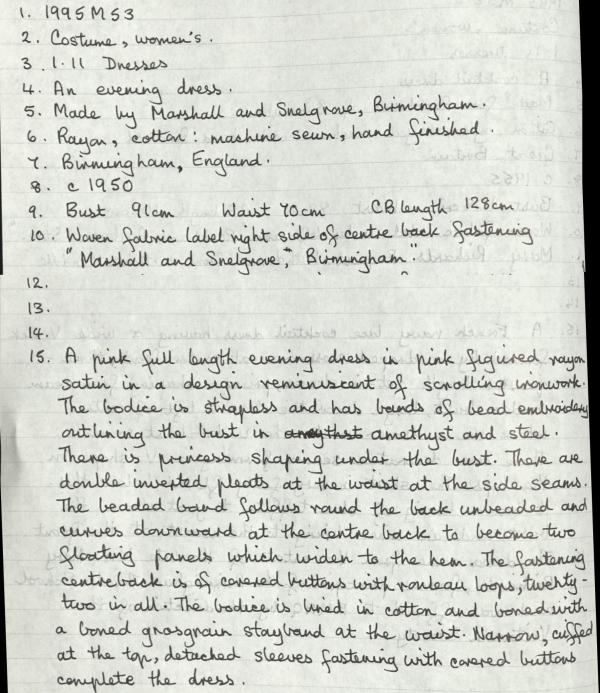 1. 1995 M 53
2. Costume, women's.
3. 1.11 Dresses
4. An evening dress.
5. Made by Marshall and Snelgrove, Birmingham.
6. Rayon, cotton: machine sewn, hand finished.
7. Birmingham, England.
8. c 1950
9. Bust 91cm Waist 70cm CB length 128cm
10. Woven fabric label right side of centre back fastening
"Marshall and Snelgrove, Birmingham".
12.
13.
14.
15. A pink full length evening dress in pink figured rayon
satin in a design reminiscent of scrolling ironwork.
The bodice is strapless and has bands of bead embroidery
outlining the bust in amethyst and steel.
There is princess shaping under the bust. There are
double inverted pleats at the waist at the side seams.
The beaded band follows round the back unbeaded and
curves downward at the centre back to become two
floating panels which widen to the hem. The fastening
centre back is of covered buttons with rouleau loops, twenty-
two in all. The bodice is lined in cotton and boned with
a boned grosgrain stayband at the waist. Narrow, cuffed
at the top, detached sleeves fastening with covered buttons
complete the dress.